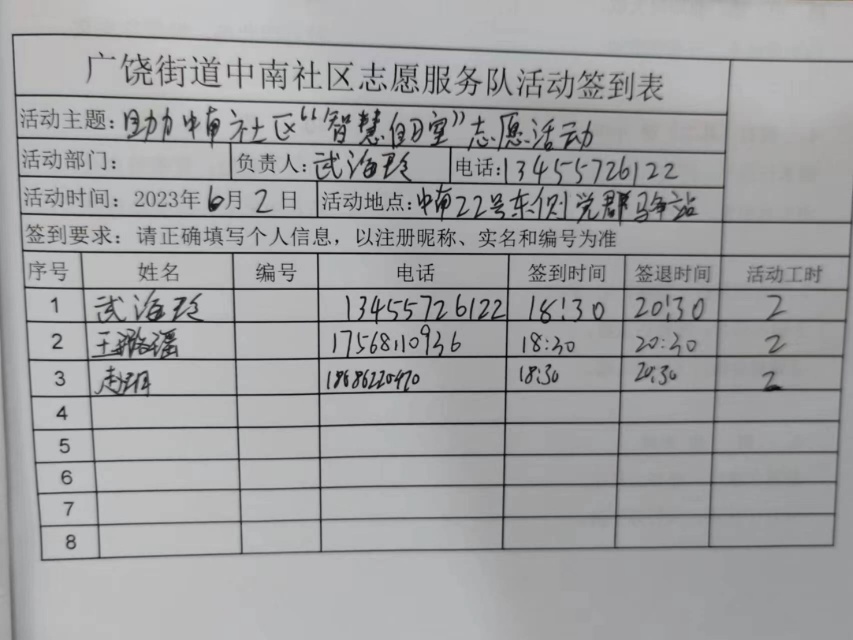 广饶街道中南社区志愿服务队活动签到表
活动主题：助力中南社区“智慧自习室”志愿活动
活动部门： 负责人：武海玲 电话：13455726122
活动时间：2023年6月2日 活动地点：中南22号东侧党群驿站
签到要求：请正确填写个人信息，以注册昵称、实名和编号为准
序号 姓名 编号 电话 签到时间 签退时间 活动工时
1 武海玲 13455726122 18:30 20:30 2
2 王 17568110936 18:30 20:30 2
3 赵 18686220470 18:30 20:30 2
4
5
6
7
8